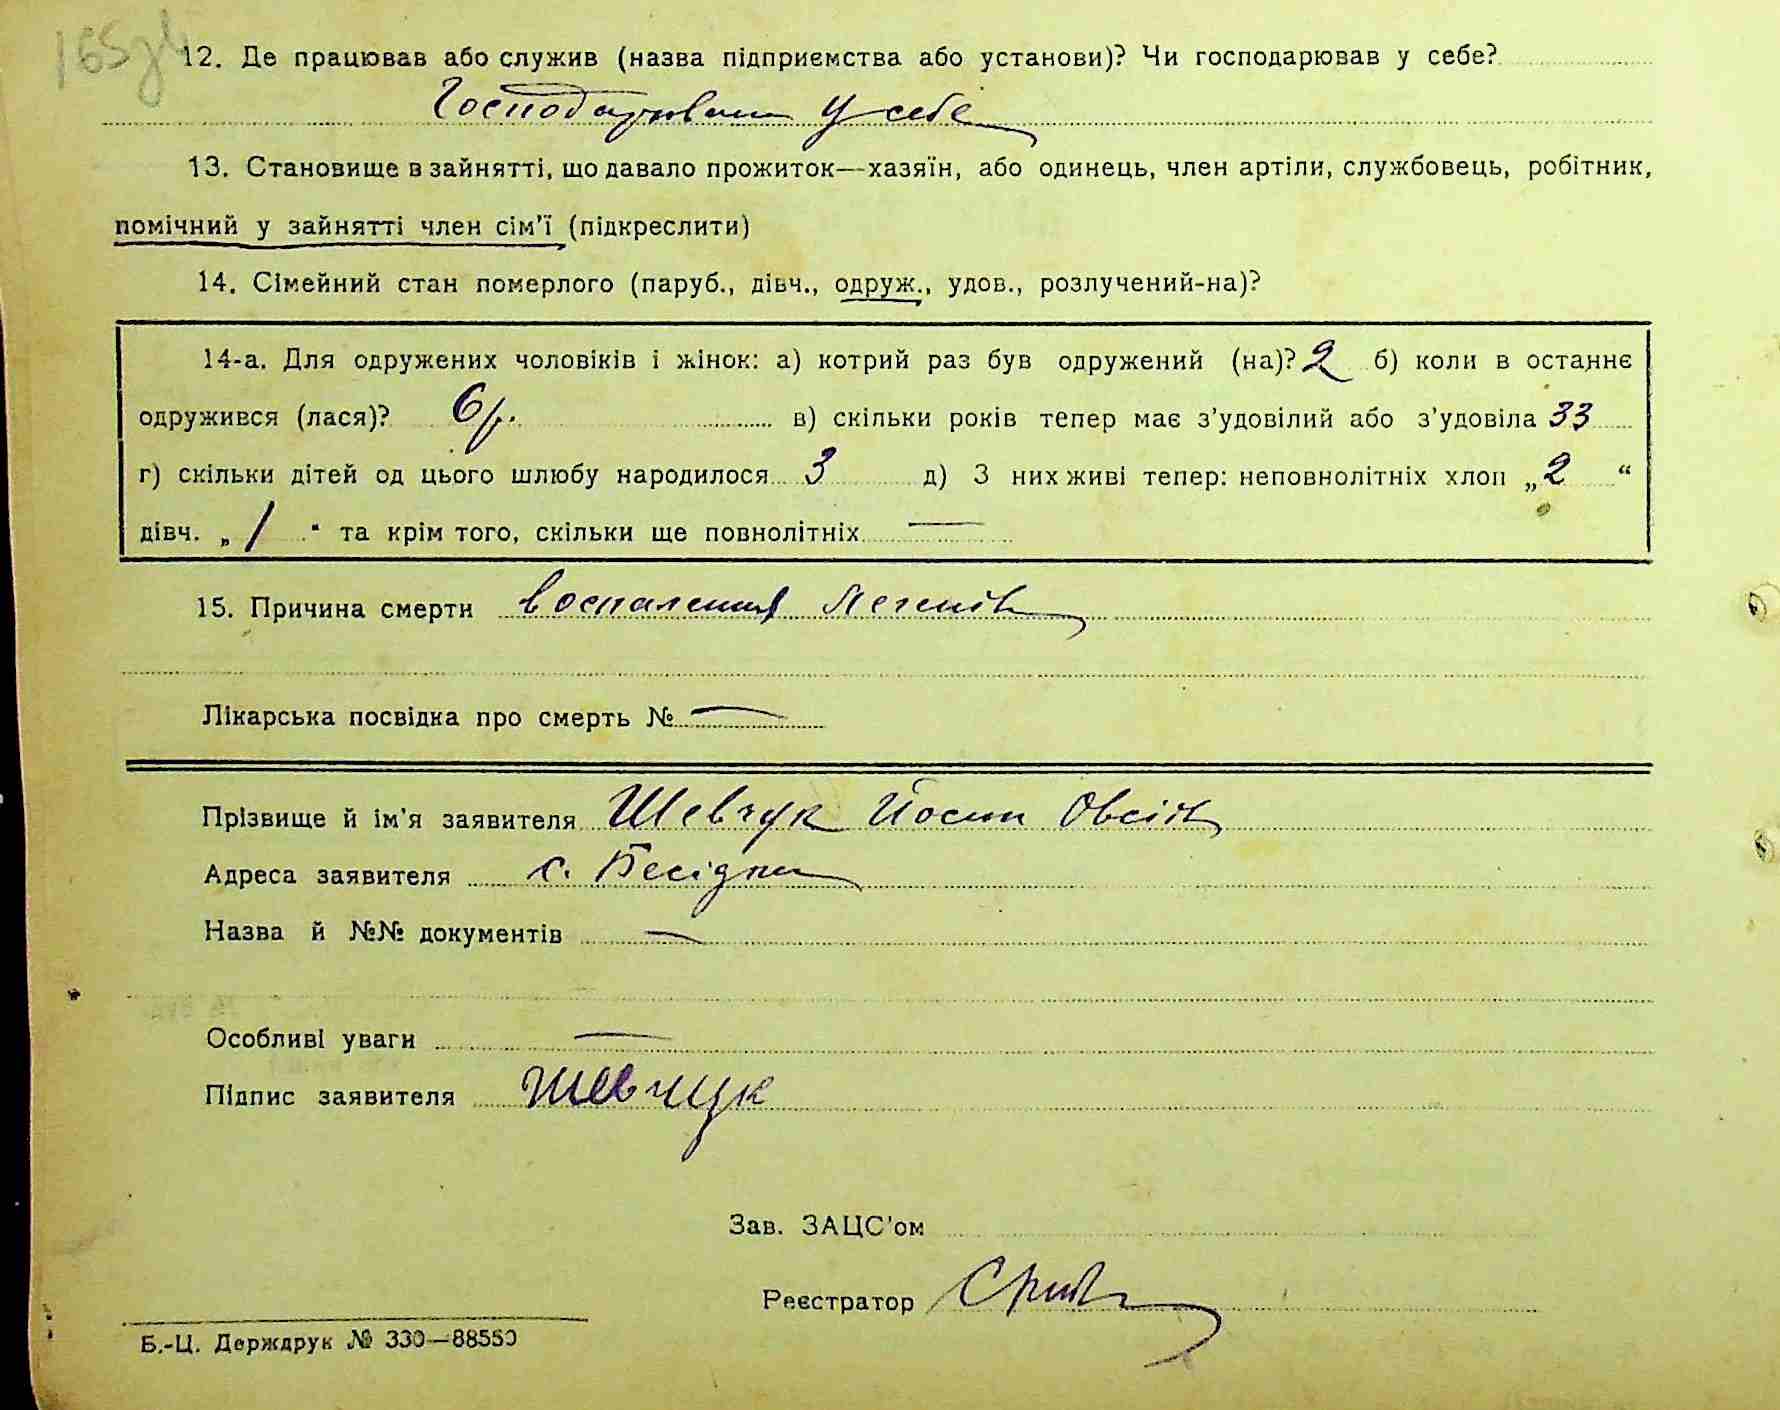 165зв
12. Де працював або служив (назва підприємства або установи)? Чи господарював у себе?
Господарювала у себе
13. Становище в зайнятті, що давало прожиток—хазяїн, або одинець, член артіли, службовець, робітник,
помічний у зайнятті член сім'ї (підкреслити)
14. Сімейний стан померлого (паруб., дівч., одруж., удов., розлучений-на)?
14-а. Для одружених чоловіків і жінок: а) котрий раз був одружений (на)? 2 б) коли в останнє
одружився (лася)? 6 р. в) скільки років тепер має з'удовілий або з'удовіла 33
г) скільки дітей од цього шлюбу народилося 3 д) З них живі тепер: неповнолітніх хлоп „2“
дівч. „1“ та крім того, скільки ще повнолітніх —
15. Причина смерти воспаления легенів
Лікарська посвідка про смерть № —
Прізвище й ім'я заявителя Шевчук Йосип Овсів
Адреса заявителя с. Бесідки
Назва й №№ документів —
Особливі уваги —
Підпис заявителя Шевчук
Зав. ЗАЦС'ом
Реєстратор
Б.-Ц. Держдрук № 330—88550